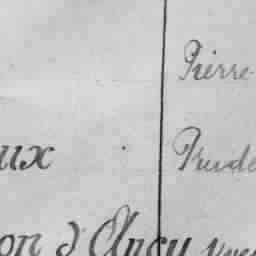 Pierre
ux
Prude
on d'Ancy